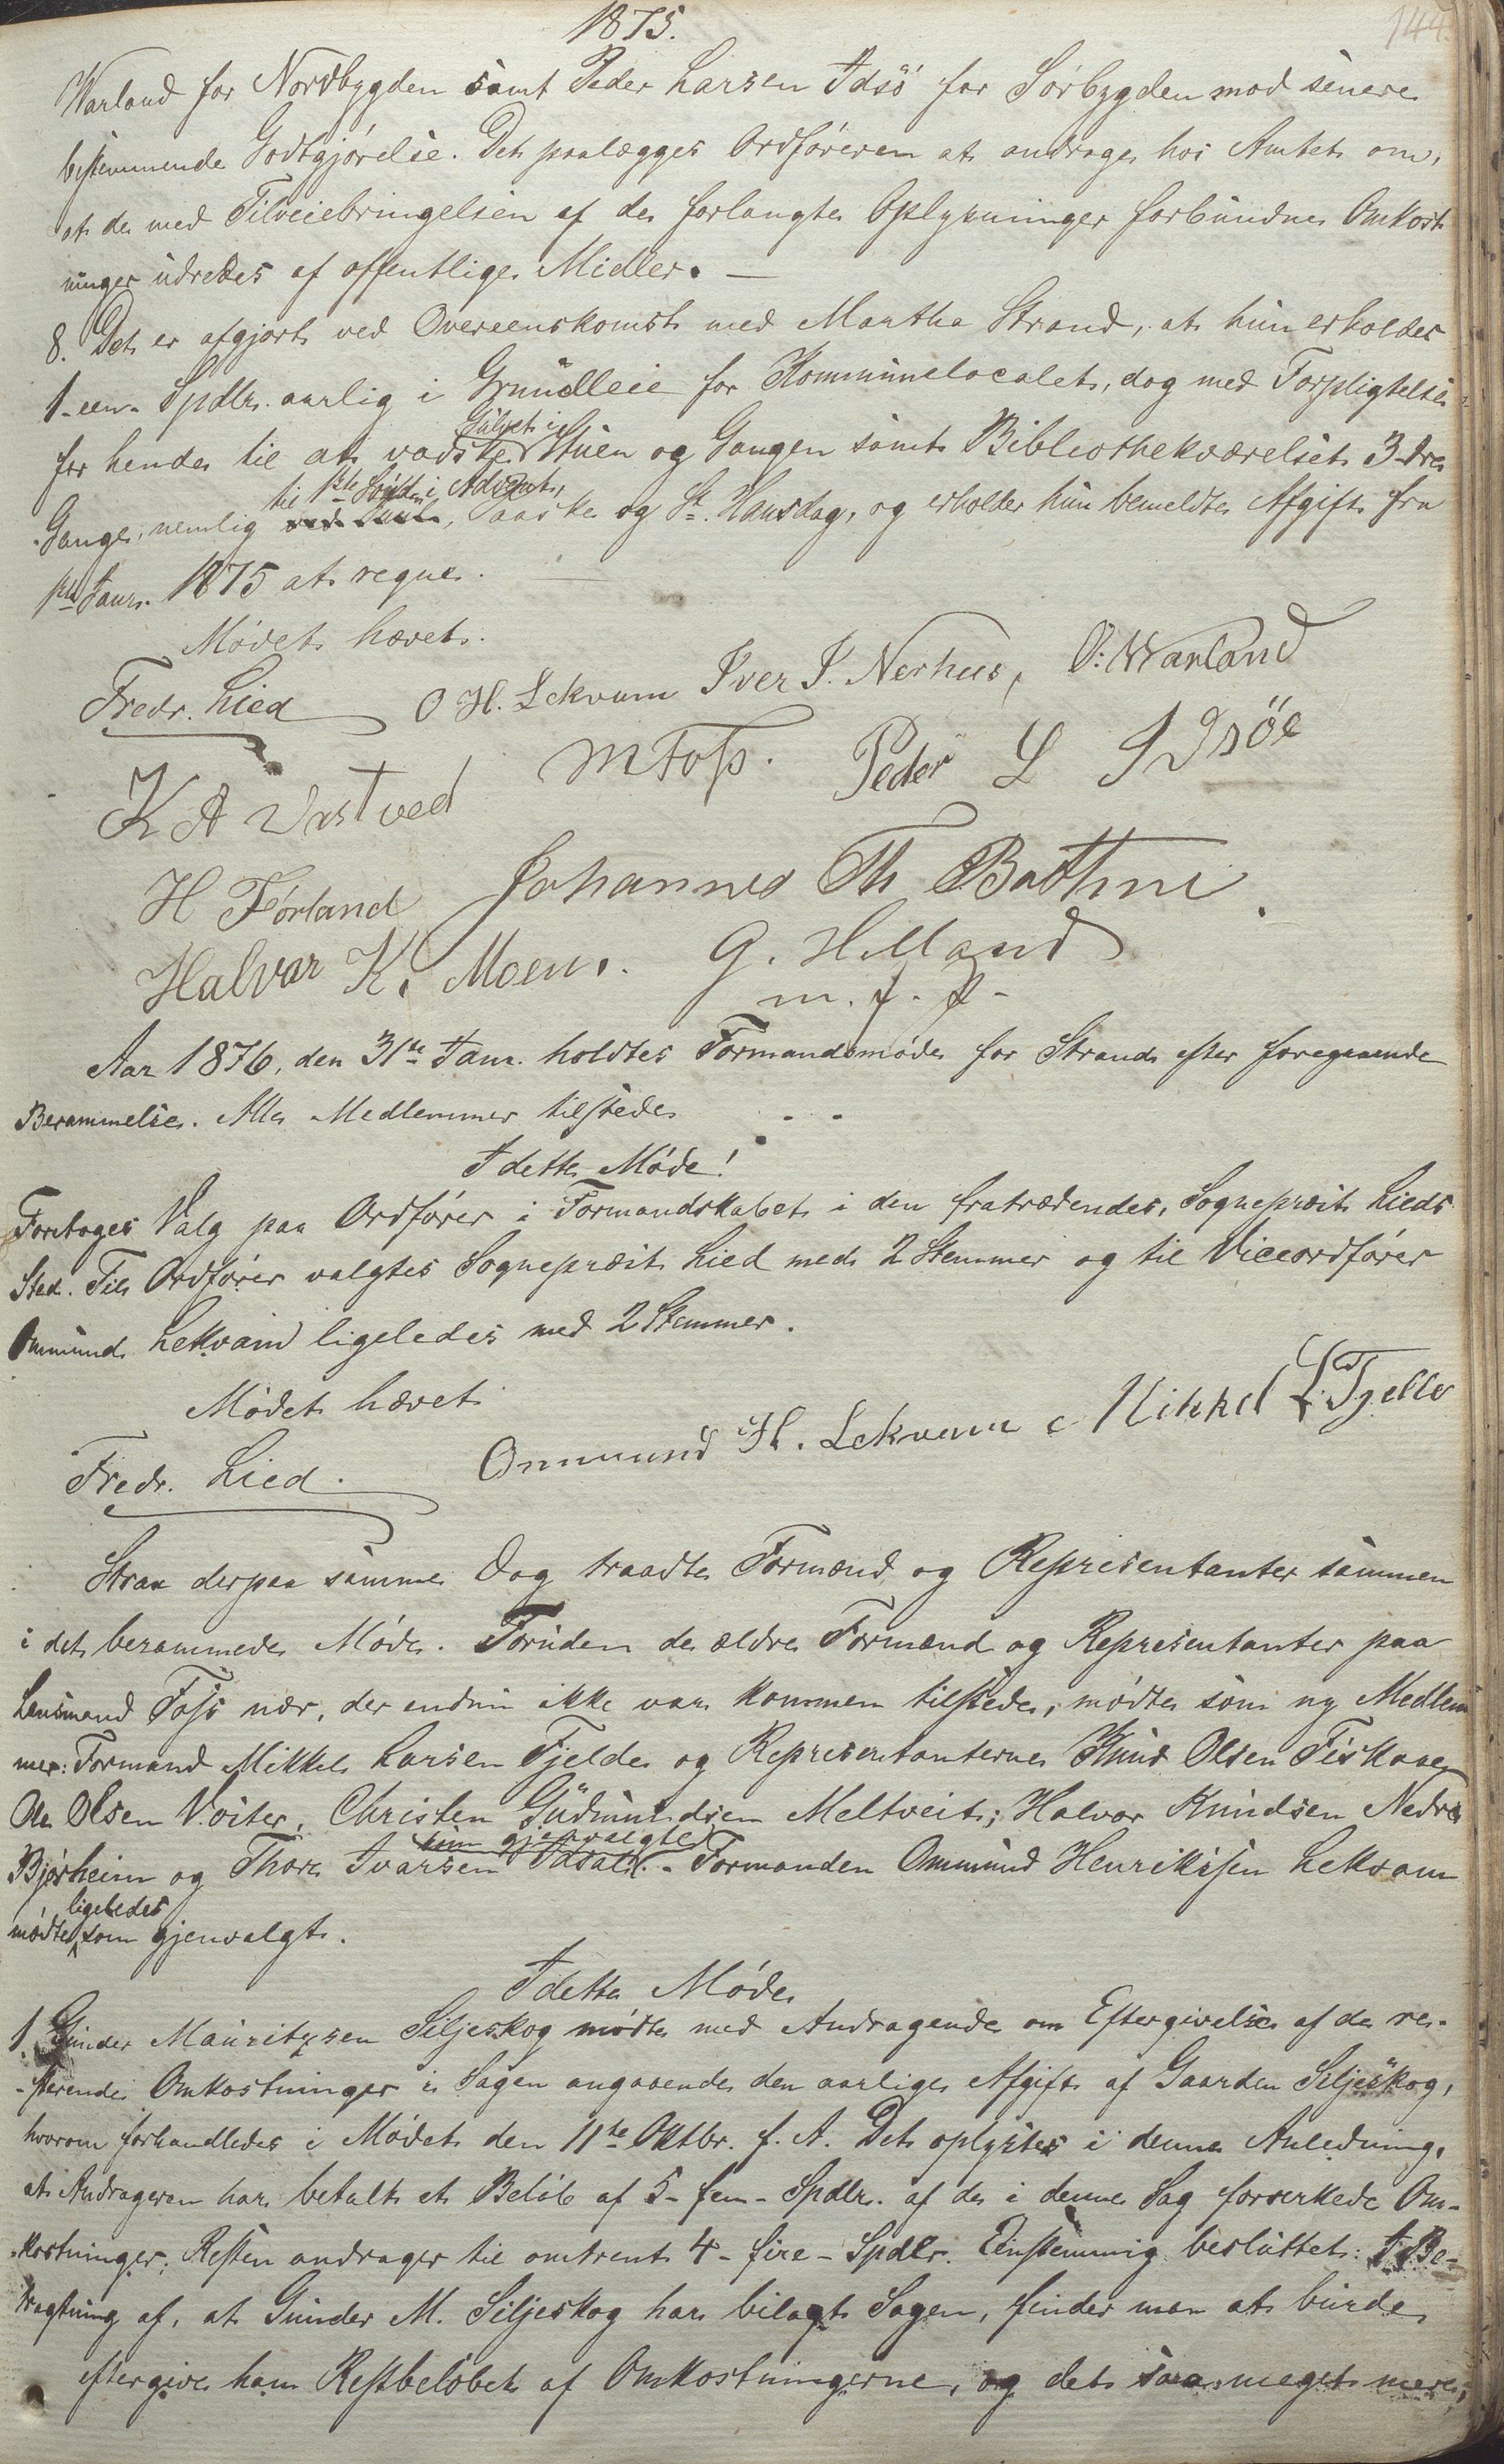 1875.
144.
Warland for Nordbygden samt Peder Larsen Idsö for Sörbygden mod senere
bestemmende Godtgjörelse. Det paalægges Ordföreren at andrage hos Amtet om,
at de med Tilveiebringelsen af de forlangte Oplysninger forbundne Omkost
ninger udredes af offentlige Midler. —
8. Det er afgjort ved Overeenskomst med Martha Strand, at hun erholder
1 - een - Spdlr. aarlig i Grundleie for Kommunelocalet, dog med Forpligtelse
for hende til at vadske Gulvet i Stuen og Gangen samt Bibliothekværelset 3 - tre
Gange, nemlig til 1ste Söndag i Advent, Paaske og St. Hansdag, og erholder hun bemeldte Afgift fra
1ste Januar 1875 at regne.
Mödet hævet.
Fredr. Lied O H. Lekvam Iver I. Nerhus, O: Warland
K A Vastved M Foss. Peder L Idsöe
H Förland Johannes Th Bathni
Halvar K. Moen. G. Helland
m. f. P.
Aar 1876, den 31te Jan. holdtes Formandsmöde for Strand efter foregaaende
Berammelse. Alle Medlemmer tilstede
I dette Möde!
Foretoges Valg paa Ordförer i Formandskabet i den fratrædendes, Sognepræst Lieds
Sted. Til Ordförer valgtes Sognepræst Lied med 2 Stemmer og til Viceordförer
Ommund Lekvam ligeledes med 2 Stemmer.
Mödet hævet
Fredr. Lied. Ommund H. Lekvam Mikkel L. Tjelle
Strax derpaa samme Dag traadte Formænd og Repræsentanter sammen
i det berammede Möde. Foruden de ældre Formænd og Representanter paa
Lensmand Foss nær, der endnu ikke var kommen tilstede, mödte som ny Medlem
mer: Formand Mikkel Larsen Fjelde og Representanterne Knud Olsen Fiskaae
Ole Olsen Voster, Christen Gudmundsen Meltveit; Halvor Knudsen Nedre
Bjørheim og Thore Ivarsen Idsal (som gjenvalgte). - Formanden Ommund Henriksen Lekvam
mödte ligeledes som gjenvalgt.
I dette Möde
1. Gunder Mauritzsen Siljeskog mödte med Andragende om Eftergivelse af de re-
-sterende Omkostninger i Sagen angaaende den aarlige Afgift af Gaarden Siljeskog,
hvorom forhandledes i Mödet den 11te Oktbr. f. A. Det oplystes i denne Anledning,
at Andrageren har betalt et Belöb af 5 - fem - Spdlr. af de i denne Sag forverkede Om-
-kostninger; Resten andrager til omtrent 4 - fire - Spdlr. Eenstemmig besluttet: I Be-
tragtning af, at Gunder M. Siljeskog har bilagt Sagen, finder man at burde
eftergive ham Restbelöbet af Omkostningerne, og det saa meget mere,